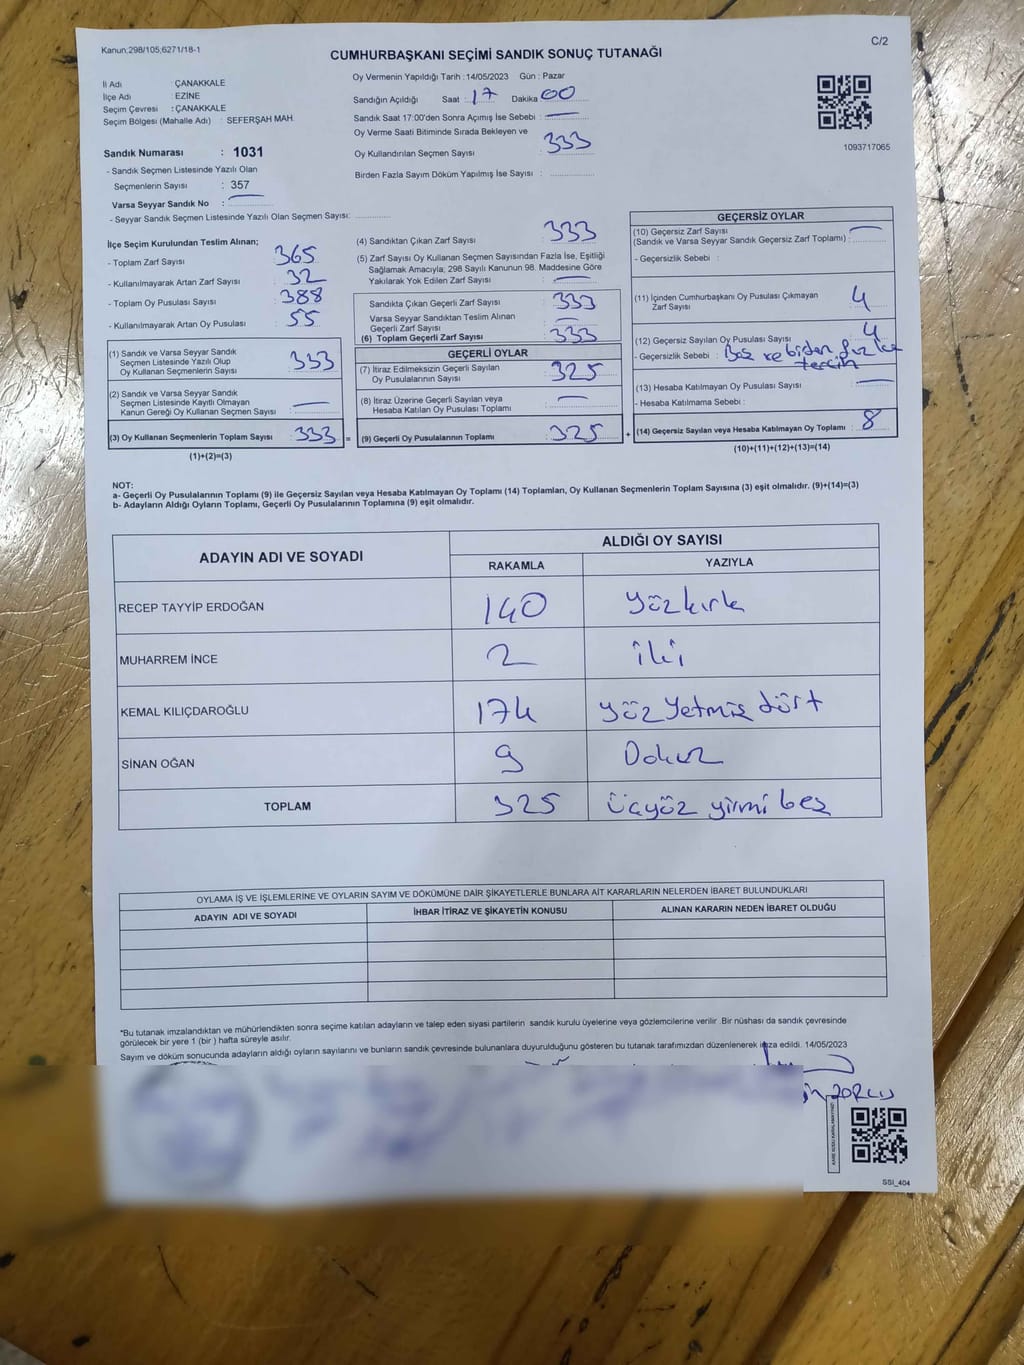 Kanun;298/105;6271/18-1
C/2
CUMHURBAŞKANI SEÇİMİ SANDIK SONUÇ TUTANAĞI
İl Adı : ÇANAKKALE
İlçe Adı : EZİNE
Seçim Çevresi : ÇANAKKALE
Seçim Bölgesi (Mahalle Adı) : SEFERŞAH MAH.
Sandık Numarası : 1031
- Sandık Seçmen Listesinde Yazılı Olan
Seçmenlerin Sayısı : 357
Varsa Seyyar Sandık No :
- Seyyar Sandık Seçmen Listesinde Yazılı Olan Seçmen Sayısı:
Oy Vermenin Yapıldığı Tarih : 14/05/2023 Gün : Pazar
Sandığın Açıldığı Saat : 17 Dakika 00
Sandık Saat 17:00'den Sonra Açımış İse Sebebi :
Oy Verme Saati Bitiminde Sırada Bekleyen ve
Oy Kullandırılan Seçmen Sayısı : 333
Birden Fazla Sayım Döküm Yapılmış İse Sayısı :
1093717065
İlçe Seçim Kurulundan Teslim Alınan;
- Toplam Zarf Sayısı 365
- Kullanılmayarak Artan Zarf Sayısı 32
- Toplam Oy Pusulası Sayısı 388
- Kullanılmayarak Artan Oy Pusulası 55
(1) Sandık ve Varsa Seyyar Sandık
Seçmen Listesinde Yazılı Olup
Oy Kullanan Seçmenlerin Sayısı : 333
(2) Sandık ve Varsa Seyyar Sandık
Seçmen Listesinde Kayıtlı Olmayan
Kanun Gereği Oy Kullanan Seçmen Sayısı :
(3) Oy Kullanan Seçmenlerin Toplam Sayısı : 333 =
(1)+(2)=(3)
(4) Sandıktan Çıkan Zarf Sayısı : 333
(5) Zarf Sayısı Oy Kullanan Seçmen Sayısından Fazla İse, Eşitliği
Sağlamak Amacıyla; 298 Sayılı Kanunun 98. Maddesine Göre
Yakılarak Yok Edilen Zarf Sayısı :
Sandıkta Çıkan Geçerli Zarf Sayısı : 333
Varsa Seyyar Sandıktan Teslim Alınan
Geçerli Zarf Sayısı :
(6) Toplam Geçerli Zarf Sayısı : 333
GEÇERLİ OYLAR
(7) İtiraz Edilmeksizin Geçerli Sayılan
Oy Pusulalarının Sayısı : 325
(8) İtiraz Üzerine Geçerli Sayılan veya
Hesaba Katılan Oy Pusulası Toplamı :
(9) Geçerli Oy Pusulalarının Toplamı : 325 +
GEÇERSİZ OYLAR
(10) Geçersiz Zarf Sayısı
(Sandık ve Varsa Seyyar Sandık Geçersiz Zarf Toplamı) :
- Geçersizlik Sebebi :
(11) İçinden Cumhurbaşkanı Oy Pusulası Çıkmayan
Zarf Sayısı : 4
(12) Geçersiz Sayılan Oy Pusulası Sayısı : 4
- Geçersizlik Sebebi : Boş ve birden fazla
tercih
(13) Hesaba Katılmayan Oy Pusulası Sayısı :
- Hesaba Katılmama Sebebi :
(14) Geçersiz Sayılan veya Hesaba Katılmayan Oy Toplamı : 8
(10)+(11)+(12)+(13)=(14)
NOT:
a- Geçerli Oy Pusulalarının Toplamı (9) ile Geçersiz Sayılan veya Hesaba Katılmayan Oy Toplamı (14) Toplamları, Oy Kullanan Seçmenlerin Toplam Sayısına (3) eşit olmalıdır. (9)+(14)=(3)
b- Adayların Aldığı Oyların Toplamı, Geçerli Oy Pusulalarının Toplamına (9) eşit olmalıdır.
ADAYIN ADI VE SOYADI ALDIĞI OY SAYISI
RAKAMLA YAZIYLA
RECEP TAYYİP ERDOĞAN 140 Yüzkırk
MUHARREM İNCE 2 iki
KEMAL KILIÇDAROĞLU 174 Yüz Yetmiş dört
SİNAN OĞAN 9 Dokuz
TOPLAM 325 Üçyüz yirmi beş
OYLAMA İŞ VE İŞLEMLERİNE VE OYLARIN SAYIM VE DÖKÜMÜNE DAİR ŞİKAYETLERLE BUNLARA AİT KARARLARIN NELERDEN İBARET BULUNDUKLARI
ADAYIN ADI VE SOYADI İHBAR İTİRAZ VE ŞİKAYETİN KONUSU ALINAN KARARIN NEDEN İBARET OLDUĞU
*Bu tutanak imzalandıktan ve mühürlendikten sonra seçime katılan adayların ve talep eden siyasi partilerin sandık kurulu üyelerine veya gözlemcilerine verilir .Bir nüshası da sandık çevresinde
görülecek bir yere 1 (bir ) hafta süreyle asılır.
Sayım ve döküm sonucunda adayların aldığı oyların sayılarını ve bunların sandık çevresinde bulunanlara duyurulduğunu gösteren bu tutanak tarafımızdan düzenlenerek imza edildi. 14/05/2023
SSI_404